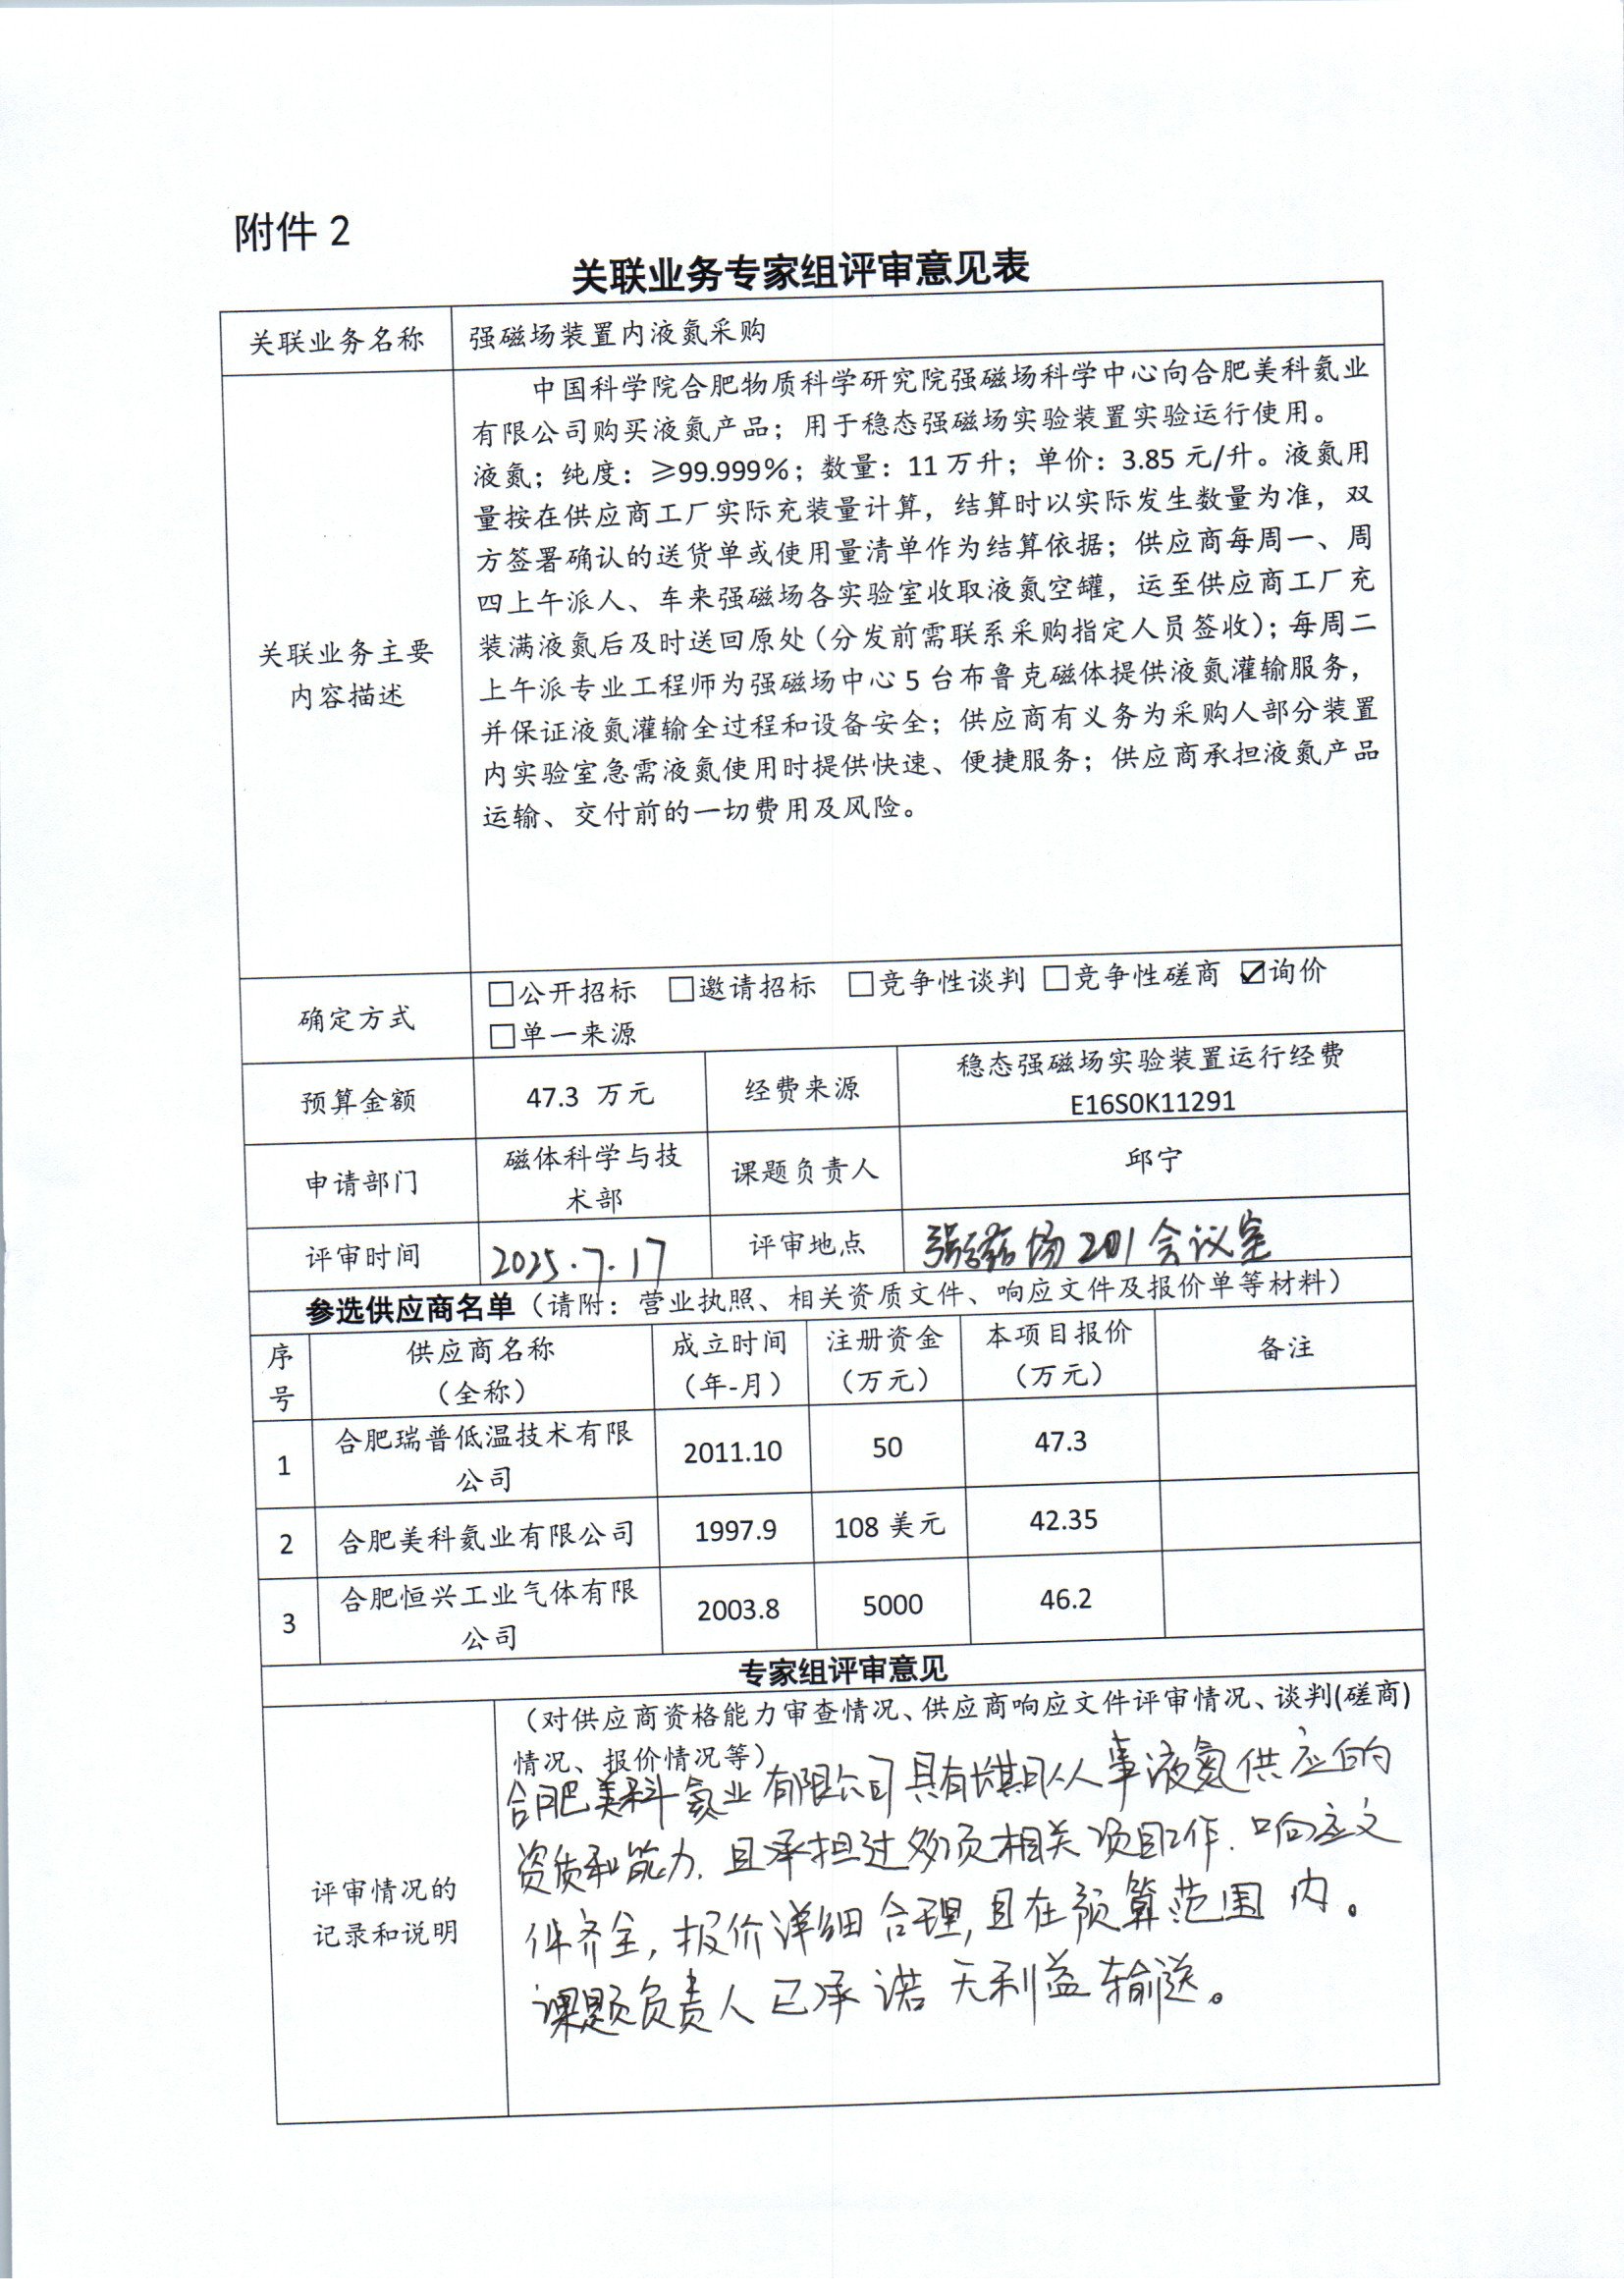 附件 2
关联业务专家组评审意见表
关联业务名称
强磁场装置内液氮采购
关联业务主要
内容描述
中国科学院合肥物质科学研究院强磁场科学中心向合肥美科氦业
有限公司购买液氮产品；用于稳态强磁场实验装置实验运行使用。
液氮；纯度：≥99.999%；数量：11 万升；单价：3.85 元/升。液氮用
量按在供应商工厂实际充装量计算，结算时以实际发生数量为准，双
方签署确认的送货单或使用量清单作为结算依据；供应商每周一、周
四上午派人、车来强磁场各实验室收取液氮空罐，运至供应商工厂充
装满液氮后及时送回原处（分发前需联系采购指定人员签收）；每周二
上午派专业工程师为强磁场中心 5 台布鲁克磁体提供液氮灌输服务，
并保证液氮灌输全过程和设备安全；供应商有义务为采购人部分装置
内实验室急需液氮使用时提供快速、便捷服务；供应商承担液氮产品
运输、交付前的一切费用及风险。
确定方式
□公开招标 □邀请招标 □竞争性谈判 □竞争性磋商 ☑询价
□单一来源
预算金额
47.3 万元
经费来源
稳态强磁场实验装置运行经费
E16S0K11291
申请部门
磁体科学与技
术部
课题负责人
邱宁
评审时间
2025.7.17
评审地点
强磁场201会议室
参选供应商名单（请附：营业执照、相关资质文件、响应文件及报价单等材料）
序
号
供应商名称
（全称）
成立时间
（年-月）
注册资金
（万元）
本项目报价
（万元）
备注
1
合肥瑞普低温技术有限
公司
2011.10
50
47.3
2
合肥美科氦业有限公司
1997.9
108 美元
42.35
3
合肥恒兴工业气体有限
公司
2003.8
5000
46.2
专家组评审意见
评审情况的
记录和说明
（对供应商资格能力审查情况、供应商响应文件评审情况、谈判(磋商)
情况、报价情况等）
合肥美科氦业有限公司具有长期从事液氮供应的
资质和能力，且承担过多项相关项目工作，响应文
件齐全，报价详细合理，且在预算范围内。
课题负责人已承诺无利益输送。